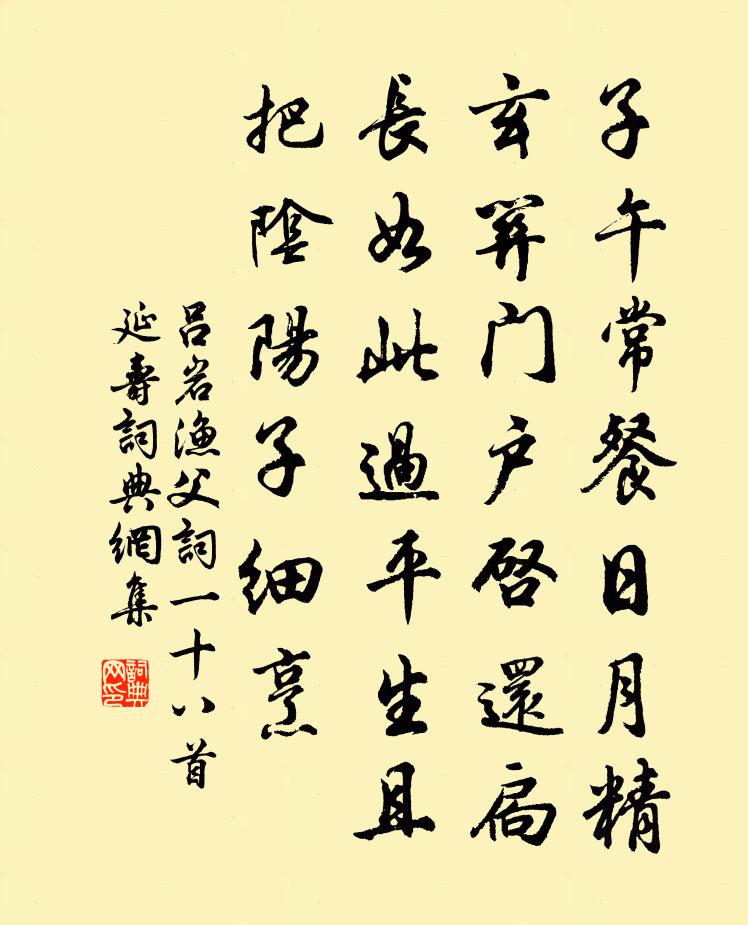 子午常餐日月精
玄關門户啓還扃
長如此過平生且
把陰陽子細烹
呂岩漁父詞一十八首
延壽詞典網集
詞典网印